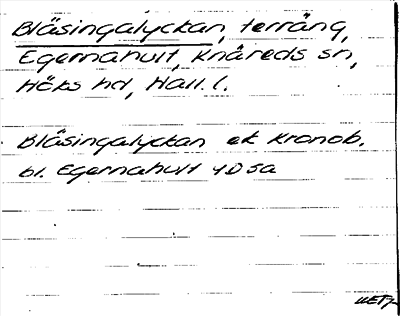 Bläsingalyckan, terräng,
Egernahult, Knäreds sn,
Höks hd, Hall. l.
Bläsingalyckan ek Kronob.
bl. Egernahult 4D 5a